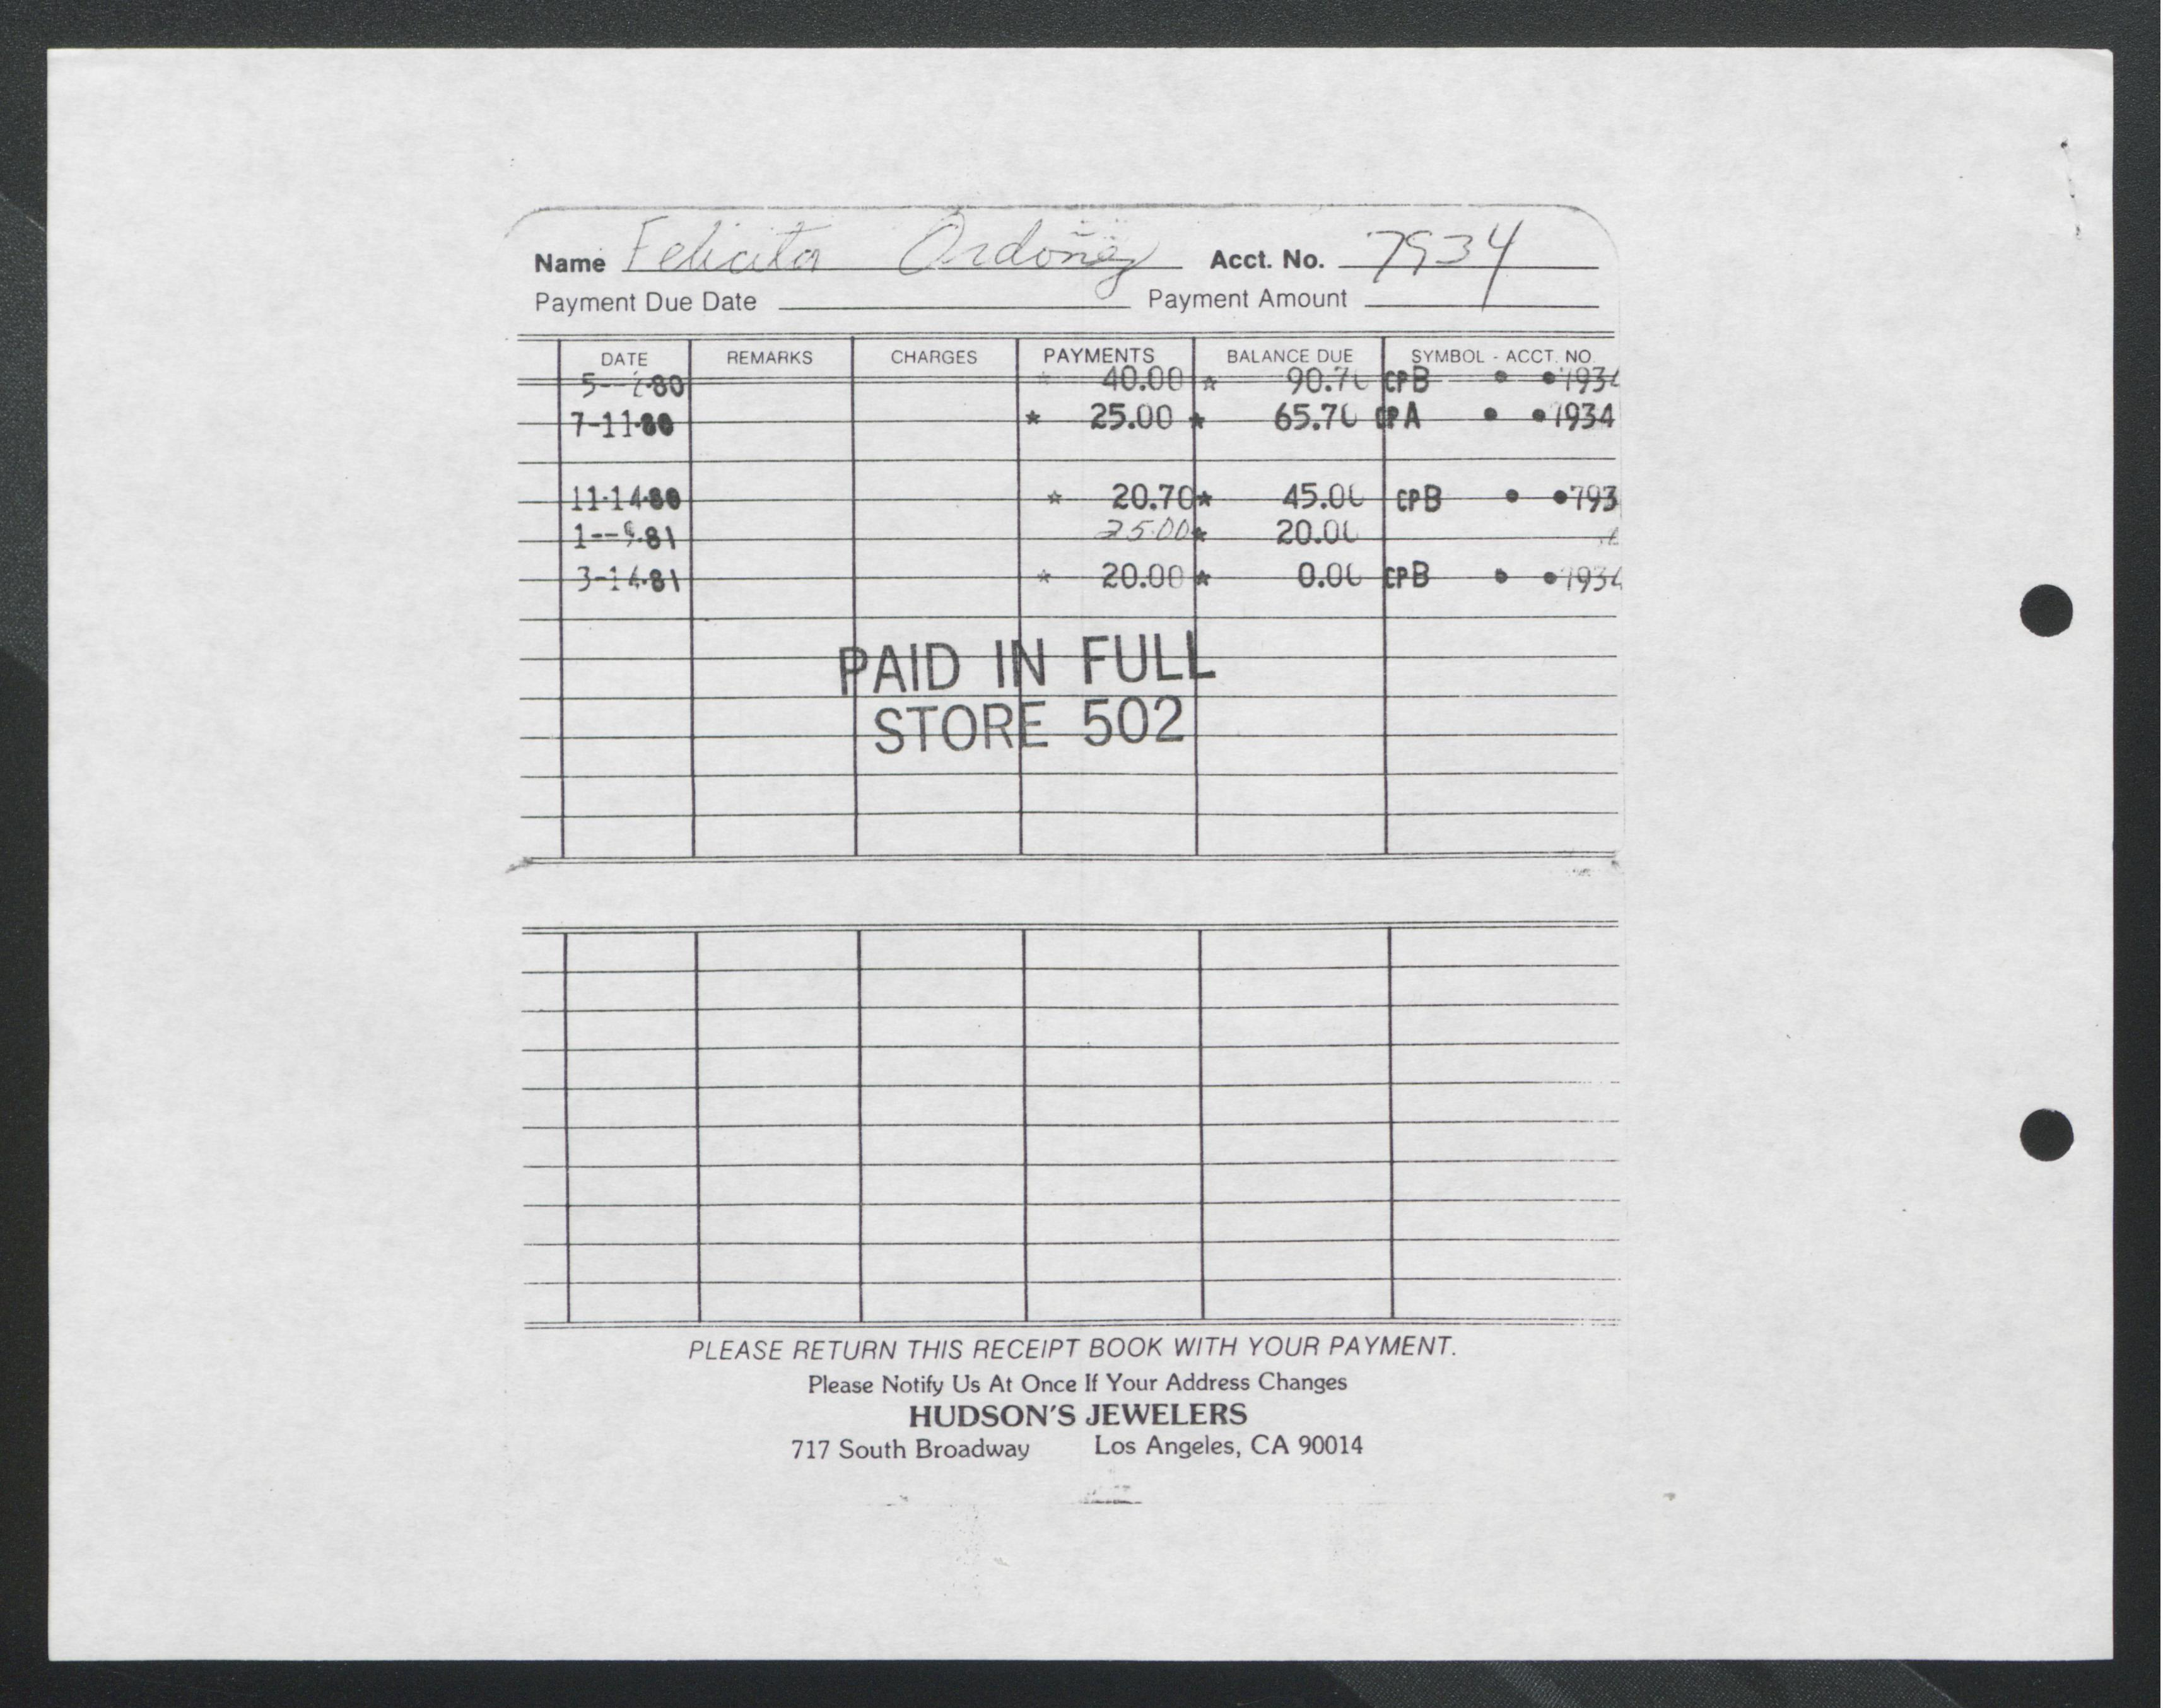 Name Felicita Ordoñez Acct. No. 7934
Payment Due Date Payment Amount
DATE REMARKS CHARGES PAYMENTS BALANCE DUE SYMBOL - ACCT. NO.
40.00 * 90.70 CPB • • 7934
7-11-80 * 25.00 * 65.70 CPA • • 7934
11-14-80 * 20.70 * 45.00 CPB • • 793
25.00 * 20.00
3-14-81 * 20.00 * 0.00 CPB • • 7934
PAID IN FULL
STORE 502
PLEASE RETURN THIS RECEIPT BOOK WITH YOUR PAYMENT.
Please Notify Us At Once If Your Address Changes
HUDSON'S JEWELERS
717 South Broadway Los Angeles, CA 90014